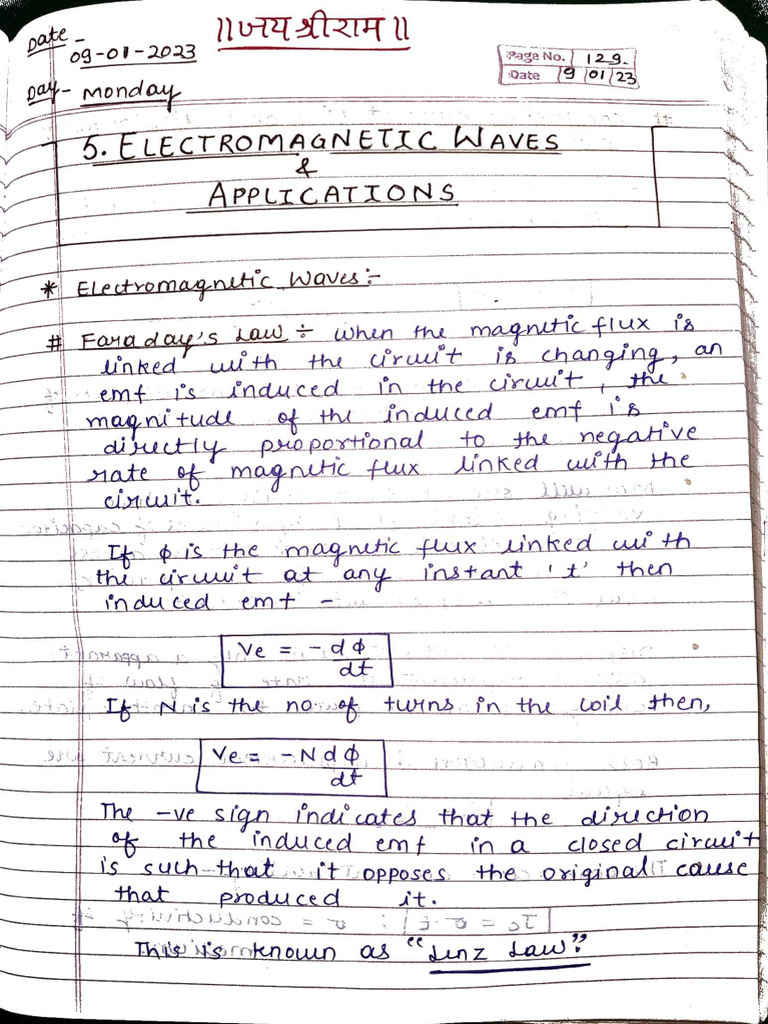 Date -
09-01-2023
॥जय श्रीराम॥
Page No. 129.
Date 9/01/23
Day - Monday
5. ELECTROMAGNETIC WAVES
&
APPLICATIONS
* Electromagnetic Waves :-
# Faraday's Law ÷ When the magnetic flux is
linked with the circuit is changing, an
emf is induced in the circuit, the
magnitude of the induced emf is
directly proportional to the negative
rate of magnetic flux linked with the
circuit.
If ϕ is the magnetic flux linked with
the circuit at any instant 't' then
induced emf -
Ve = -dϕ
dt
If N is the no. of turns in the coil then,
Ve = -Ndϕ
dt
The -ve sign indicates that the direction
of the induced emf in a closed circuit
is such that it opposes the original cause
that produced it.
This is known as "Lenz Law"